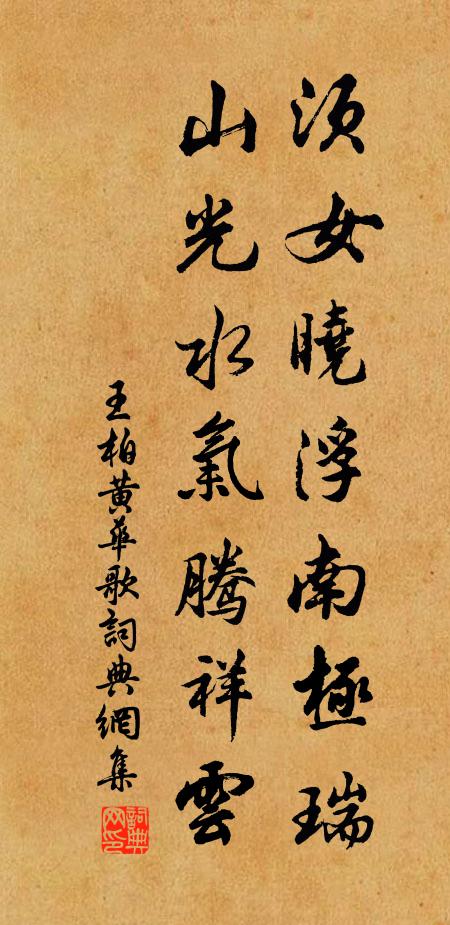 須女曉浮南極瑞
山光水氣騰祥雲
王柏黃華歌詞典網集
詞典网印